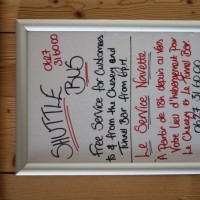 0627
316000
SHUTTLE
BUS
Free Service for Customers
to & from the Chesery and
Tunnel Bar from 6pm.
Le Service Navette
A Partir de 18h depuis ou vers
Votre Lieu d'hebergement Pour
Le Chesery et Le Tunnel Bar.
0627 316000